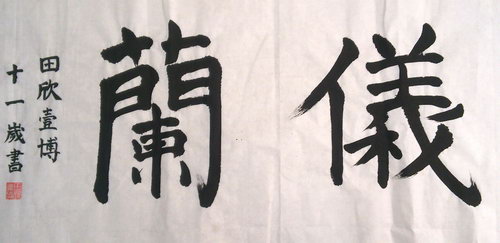 儀蘭
田欣壹博
十一歲書